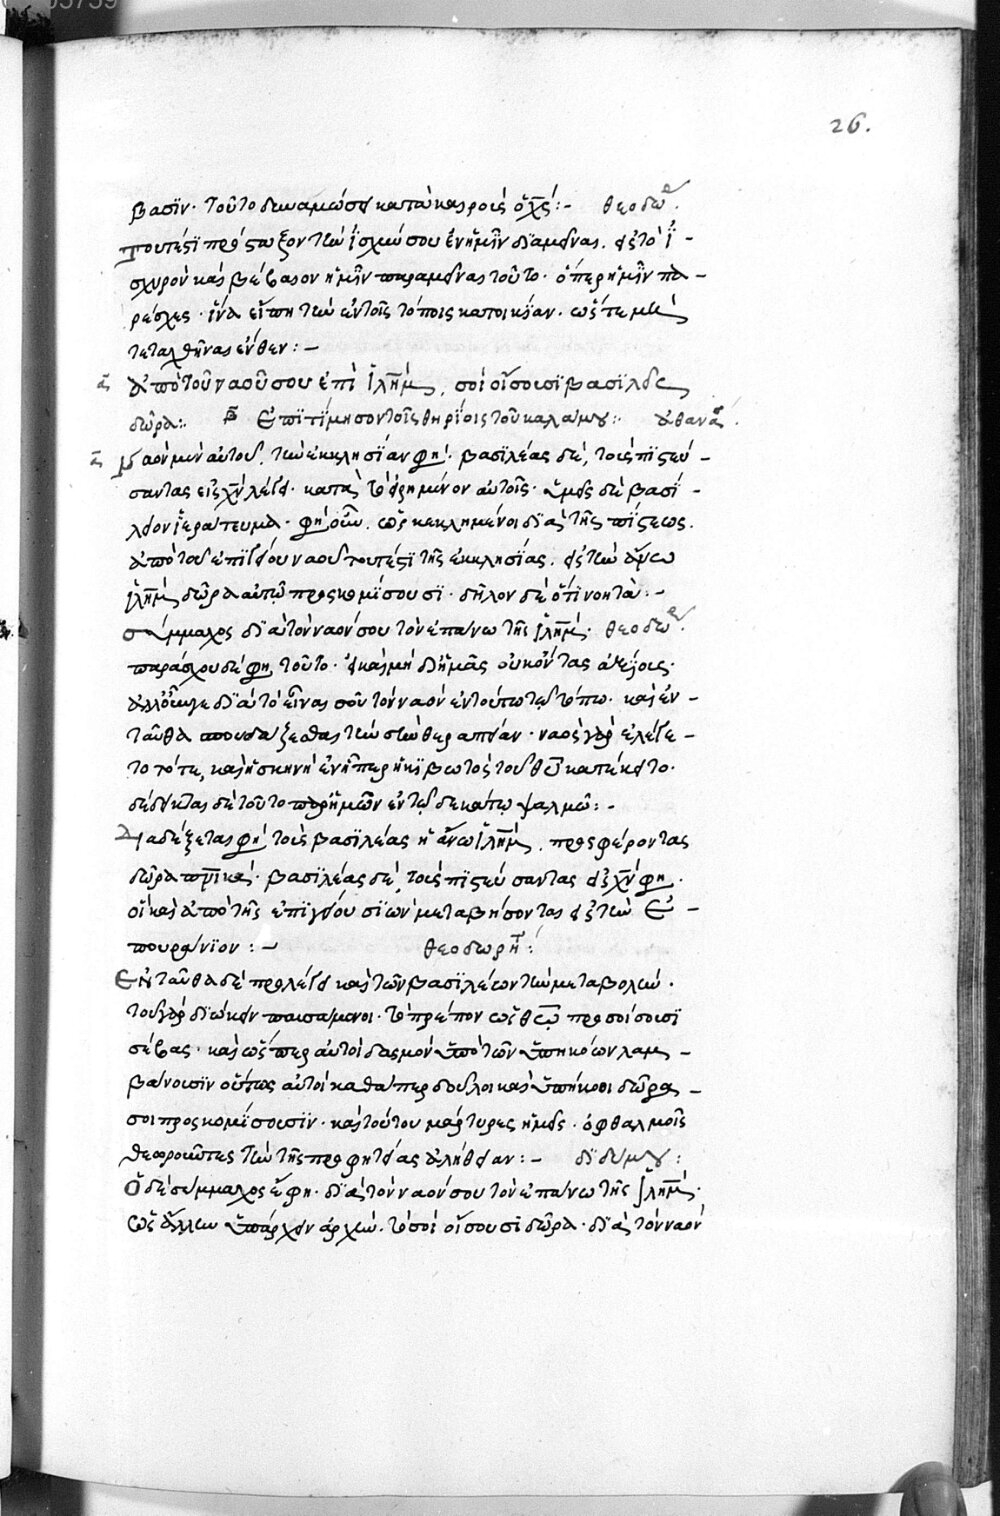 26.
βασϊν· τοῦτο δυναμώσει κατὰ καιροὺς ὁ χς: θεοδώ.
Τουτέστι πρόσταξον τὴν ἰσχύν σου ἐν ἡμῖν διαμεῖναι. εἰς τὸ ἰ-
σχυρὸν καὶ βέβαιον ἡμῖν παραμεῖναι τοῦτο· ὅπερ ἡμῖν πα-
ρέσχες· ἵνα εἴπη τὴν ἐν τοῖς τόποις κατοικίαν. ὥστε μὴ
ἐνθεν:-
ἀπὸ τοῦ ναοῦ σου ἐπὶ ἰλήμ, σοὶ οἴσουσι βασιλεῖς
δῶρα: β ἐπιτίμησον τοῖς θηρίοις τοῦ καλάμου: ἀθανα.
ναὸν μὲν αὐτοῦ, τὴν ἐκκλησίαν φη· βασιλέας δὲ, τοὺς πιστεύ-
σαντας εἰς χν λέγει· κατὰ τὸ εἰρημένον αὐτοῖς· ὑμεῖς δὲ βασί-
λειον ἱεράτευμα· φη οὖν. ὡς κεκλημένοι διὰ τῆς πίστεως.
ἀπὸ τοῦ ἐπιγείου ναοῦ τουτέστι τῆς ἐκκλησίας. εἰς τὴν ἄνω
ἰλήμ δῶρα αὐτῷ προσκομίσουσι· δῆλον δὲ ὅτι νοητά:-
σύμμαχος διὰ τὸν ναόν σου τὸν ἐπάνω τῆς ἰλήμ· θεοδώ.
παράσχου δέ φη τοῦτο· εἰ καὶ μὴ δι' ἡμᾶς οὐκ ὄντας ἀξίους·
ἀλλ' οὖν γε διὰ τὸ εἶναι σὸν τὸν ναὸν ἐν τούτῳ τῷ τόπῳ· καὶ ἐν-
ταῦθα σπουδάζεσθαι τὴν σὴν θεραπείαν· ναὸς γὰρ ἐλέγε-
το τότε, καὶ ἡ σκηνὴ ἐν ᾗπερ ἡ κιβωτὸς τοῦ θυ κατέκειτο·
δέδεικται δὲ τοῦτο παρ' ἡμῶν ἐν τῷ δεκάτῳ ψαλμῷ:-
Διαδέξεται φη τοὺς βασιλέας ἡ ἄνω ἰλήμ. προσφέροντας
δῶρα πνικά· βασιλέας δὲ, τοὺς πιστεύσαντας εἰς χν φη.
οἳ καὶ ἀπὸ τῆς ἐπιγείου σιὼν μεταβήσονται εἰς τὴν ἐ-
πουράνιον:- θεοδωρήτ:
Ἐνταῦθα δὲ προλέγει καὶ τῶν βασιλέων τὴν μεταβολήν.
τοῦ γὰρ διώκειν παυσάμενοι· τὸ πρέπον ὡς θω προσοίσουσι
σέβας· καὶ ὥσπερ αὐτοὶ δασμὸν ὑπὸ τῶν ὑπηκόων λαμ-
βάνουσιν οὕτως αὐτοὶ καθάπερ δοῦλοι καὶ ὑπήκοοι δῶρα-
σοι προσκομίσουσιν· καὶ τούτου μάρτυρες ἡμεῖς· ὀφθαλμοῖς
θεωροῦντες τὴν τῆς προφητείας ἀλήθειαν:- διδύμου:
Ὁ δὲ σύμμαχος ἔφη· διὰ τὸν ναόν σου τὸν ἐπάνω τῆς ἰλήμ·
ὡς ἄλλην ὑπάρχειν ἀρχήν· τὸ σοὶ οἴσουσι δῶρα· διὰ τὸν ναὸν